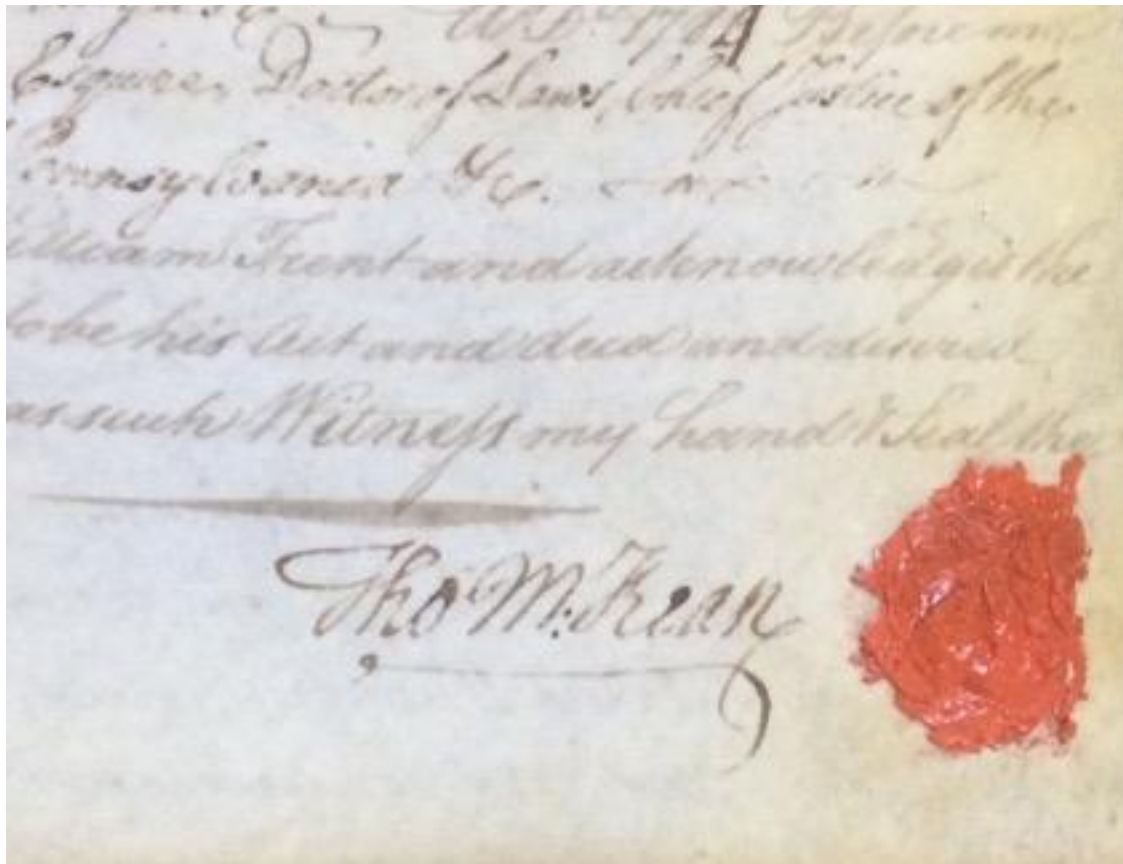 A.D. 1784 Before me
Esquire, Doctor of Laws, Chief Justice of the
Pennsylvania &c.
William Trent and acknowledged the
to be his Act and deed and desired
as such Witneſs my hand & Seal the
Tho M:Kean